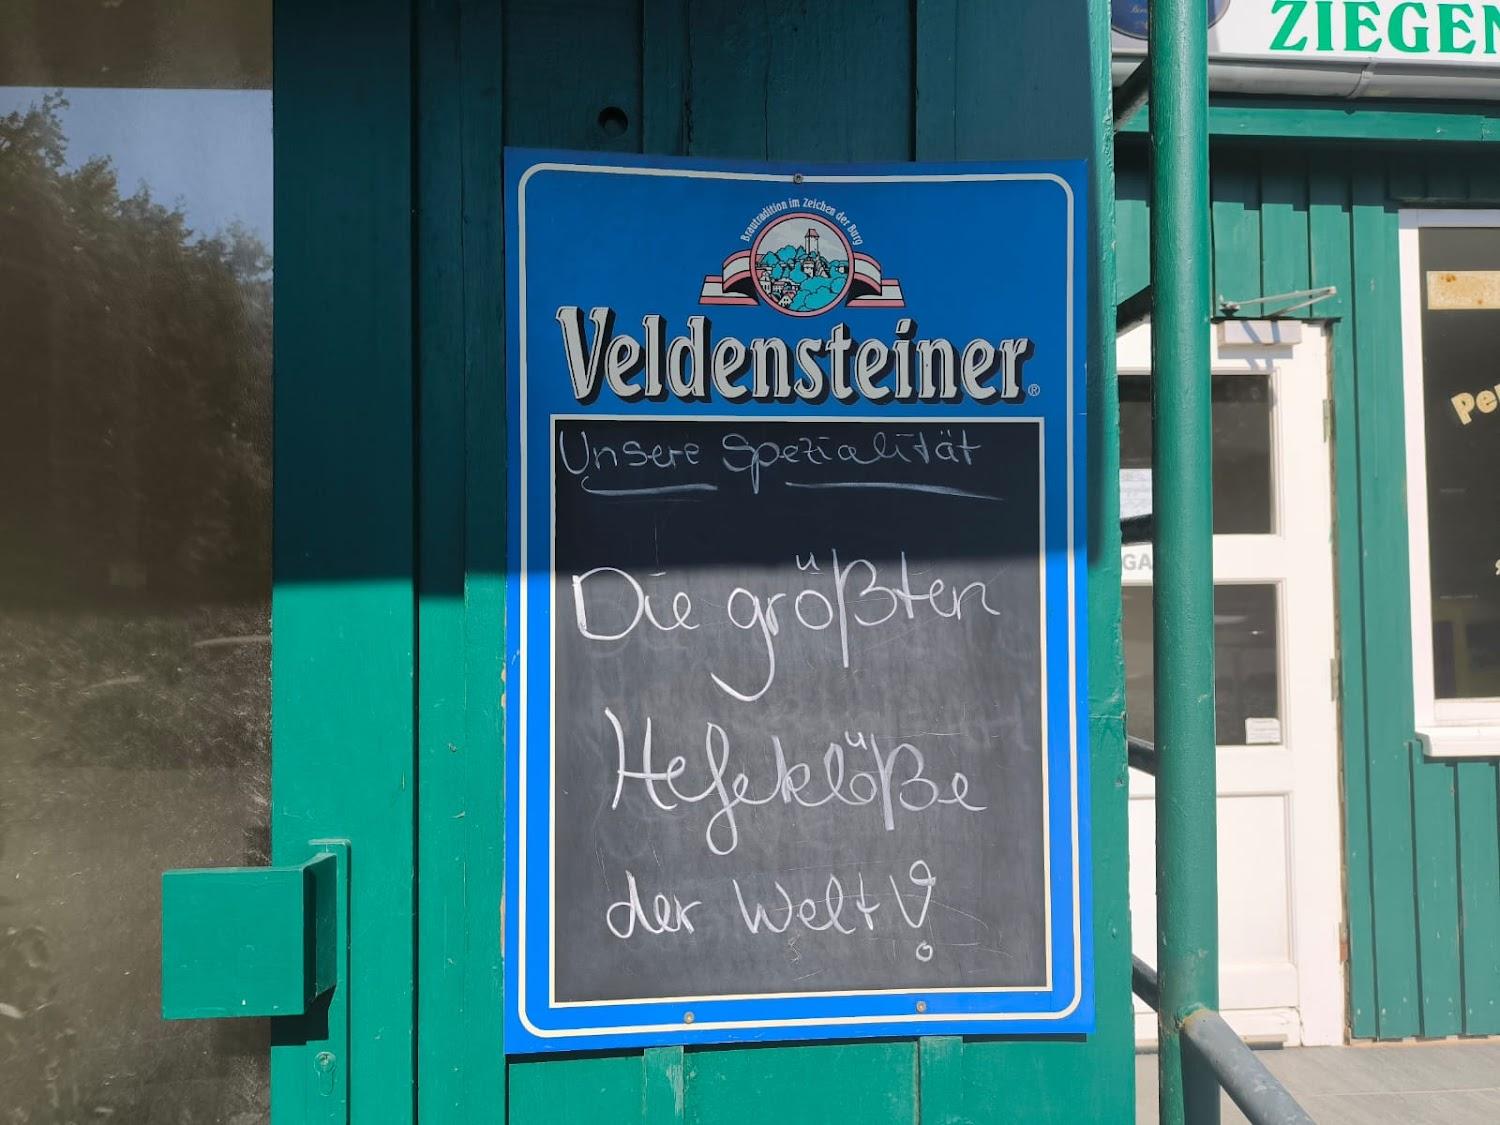 ZIEGEN
Brautradition im Zeichen der Burg
Veldensteiner®
Unsere Spezialität
Die größten
Hefeklöße
der Welt!
GA
Pe